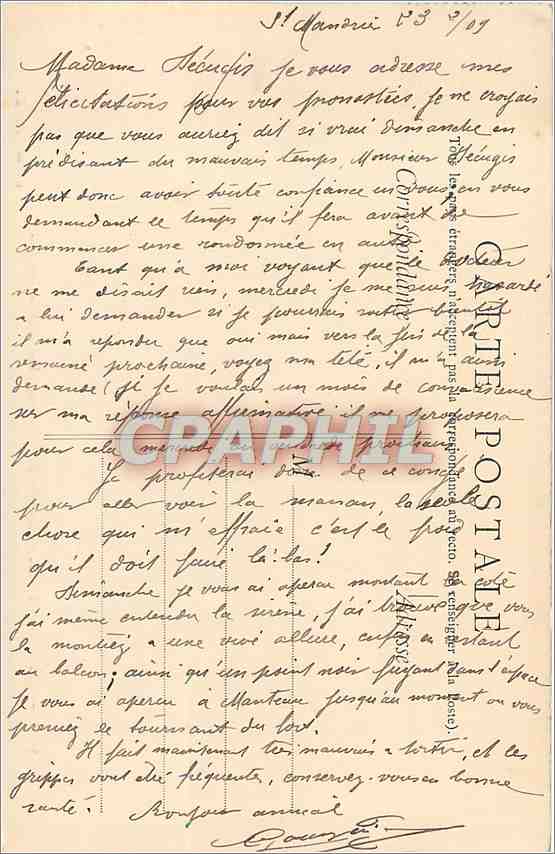 St Mandrier 23 2/09
Madame Décugis je vous adresse mes
félicitations pour vos pronostics. Je ne croyais
pas que vous auriez dit si vrai dimanche en
prédisant du mauvais temps, Monsieur Décugis
peut donc avoir toute confiance en vous en vous
demandant le temps qu'il fera avant de
commencer une randonnée en auto.
Tant qu'à moi voyant que le docteur
ne me disait rien, mercredi je me suis hasardé
a lui demander si je pourrais sortir bientôt
il m'a répondu que oui mais vers la fin de la
semaine prochaine, voyez ma tête, il m'a aussi
demandé si je voulais un mois de convalescence
sur ma réponse affirmative il me proposera
pour cela mercredi ou vendredi prochain.
Je profiterai donc de ce congé
pour aller voir la maman, la seule
chose qui m'effraie c'est le froid
qu'il doit faire là-bas!
Dimanche je vous ai aperçu montant la côte
j'ai même entendu la sirène, j'ai trouvé que vous
la montiez a une vive allure, en étant
au balcon; ainsi qu'un point noir fuyant dans l'espace
je vous ai aperçu à jusqu'au moment ou vous
preniez le tournant du fort.
Il fait maintenant très mauvais a sortir, et les
grippes vont être fréquentes, conservez-vous en bonne
santé. Bonjour amical
CARTE POSTALE
Tous les pays étrangers n'acceptent pas la correspondance au recto. (Se renseigner à la Poste).
Correspondance
Adresse
M
CPAPHIL